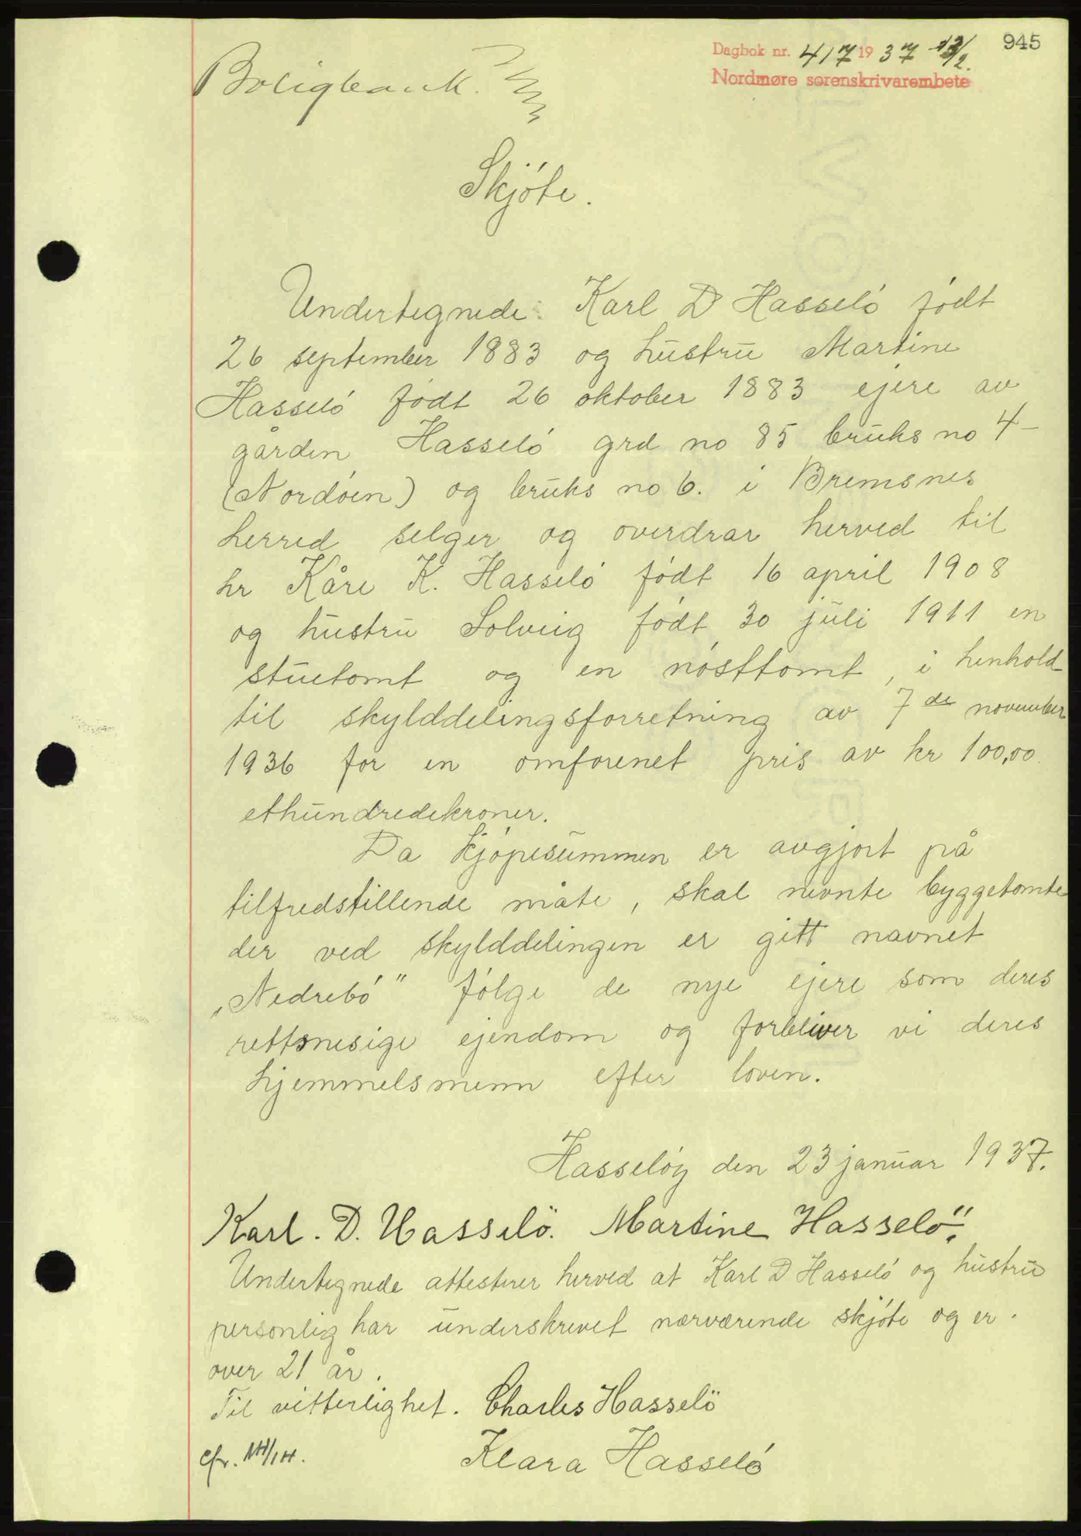 945
Dagbok nr. 417 1937 13/2.
Nordmøre sorenskrivarembete
Boligbank.
Skjóte.
Undertegnede Karl D Hasseló født
26 september 1883 og hustru Martine
Hasseló født 26 oktober 1883 ejere av
gården Hasseló grd no 85 bruks no 4-
(Nordóen) og bruks no 6. i Bremsnes
herred selger og overdrar herved til
hr Kåre K. Hasseló født 16 april 1908
og hustru Solveig født 30 juli 1911 en
stuetomt og en nósttomt, i henhold
til skylddelingsforretning av 7de november
1936 for en omforenet pris av kr 100,00
ethundredekroner.
Da kjópesummen er avgjort på
tilfredstillende måte, skal nevnte byggetomte
der ved skylddelingen er gitt navnet
"Nedrebó" fólge de nye ejere som deres
rettsmesige ejendom og forbliver vi deres
hjemmelsmenn efter loven.
Hasselóy den 23 januar 1937.
Karl. D. Hasselö. Martine Hasselö.
Undertegnede attesterer herved at Karl D Hasseló og hustru
personlig har underskrevet nærværende skjóte og er
over 21 år.
Til vitterlighet. Charles Hasselö
Klara Hasseló
cfr.